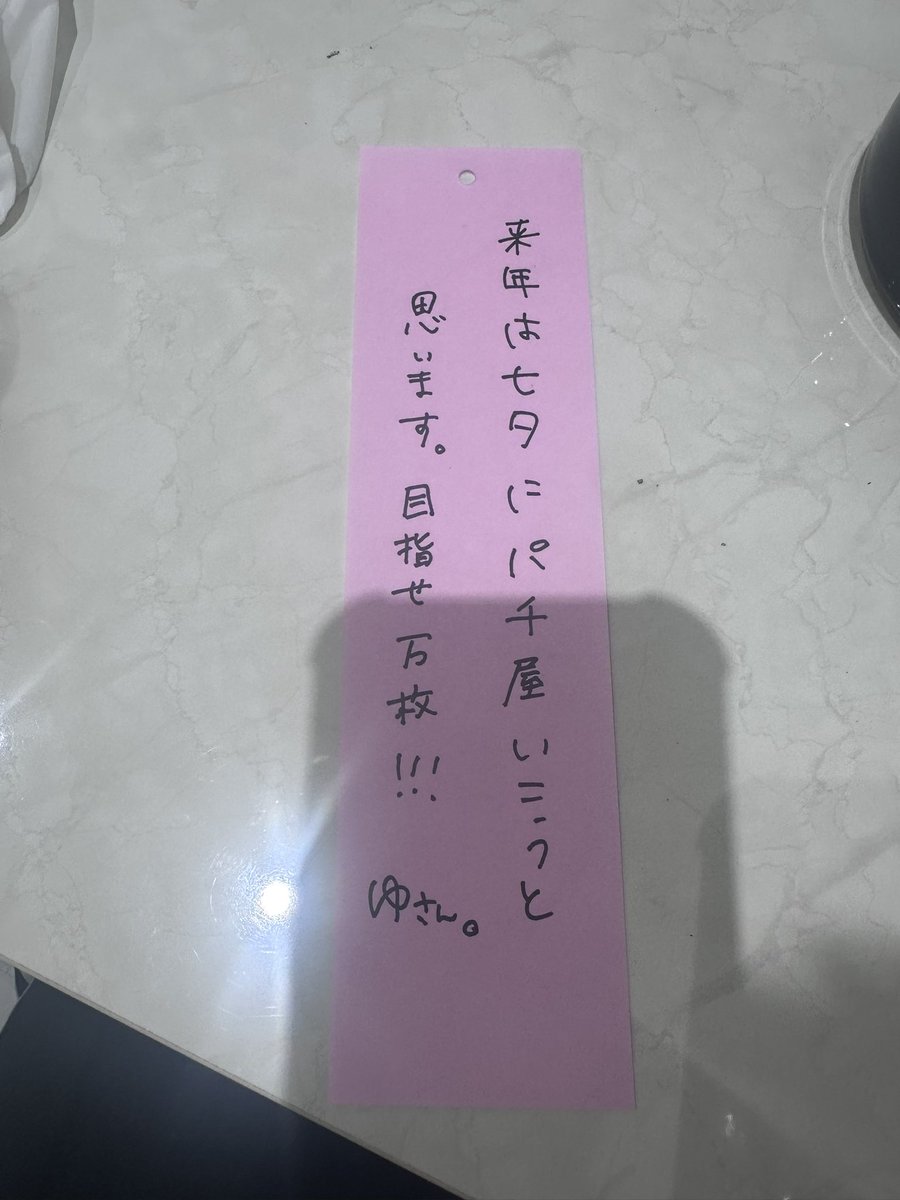 来年は七夕にパチ屋いこうと
思います。目指せ万枚!!!
ゆさん。